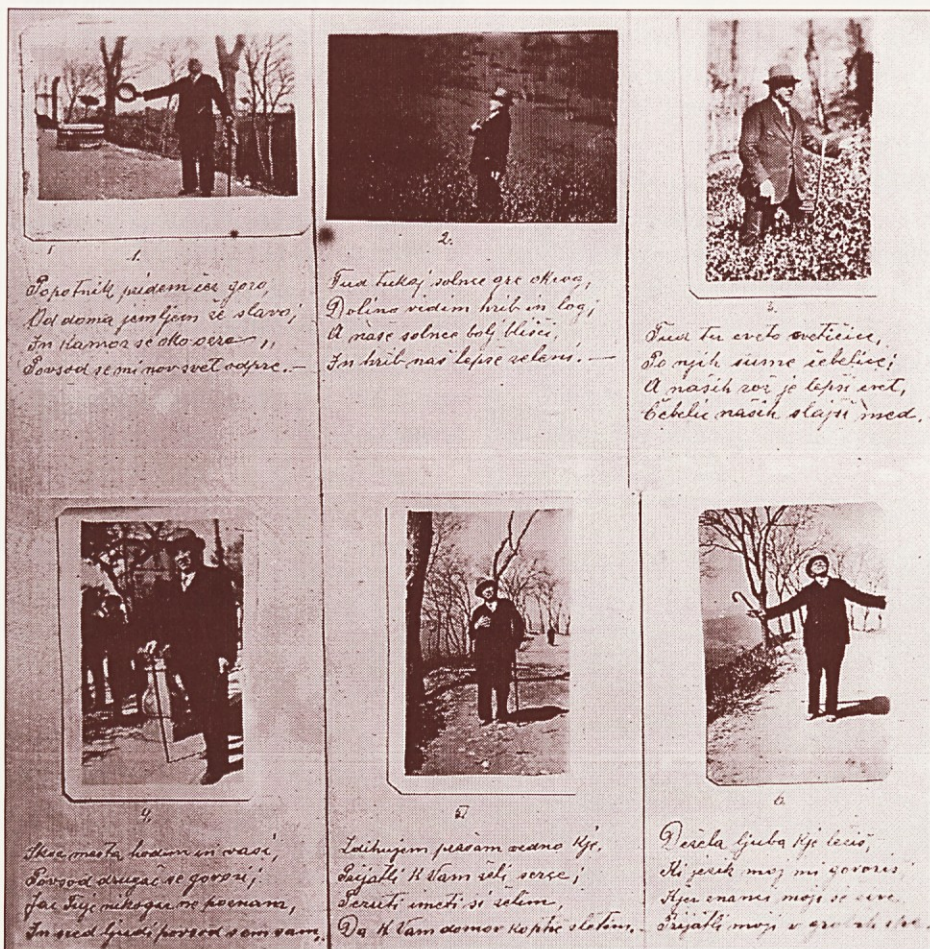 1.
Popotnik pridem čez goro,
Od doma jemljem še slavo;
In kamor se oko ozre,
Povsod se mi nov svet odpre. —
2.
Tud tukaj solnce gre okrog,
Dolino vidim hrib in log;
A naše solnce bolj blišči,
In hrib naš lepše zeleni. —
3.
Tud tu cveto cvetičice,
Po njih šume čebelice;
A naših rož je lepši cvet,
Čebelic naših slajši med.
4.
Skoz mesta hodim in vasi,
Povsod drugač se govori;
Jaz tuje nikogar ne poznam,
In sred ljudi povsod sem sam.
5.
Zdihujem prašam vedno kje,
Prijatli k Vam želi serce;
Peruti imeti si želim,
Da k Vam domov kophe sletim. —
6.
Dežela ljuba kje ležiš,
Ki jezik moj mi govoriš
Kjer znanci moji se
Prijatli moji v grobih spe.